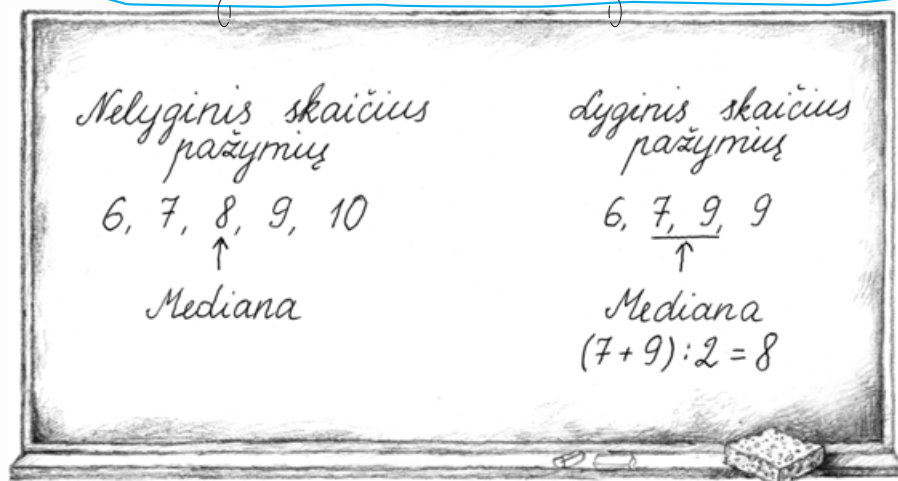 Nelyginis skaičius
pažymių
6, 7, 8, 9, 10
Mediana
Lyginis skaičius
pažymių
6, 7, 9, 9
Mediana
(7 + 9) : 2 = 8